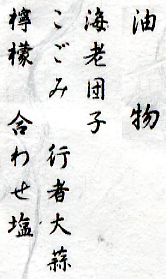 油物
海老団子
こごみ 行者大蒜
檸檬 合わせ塩